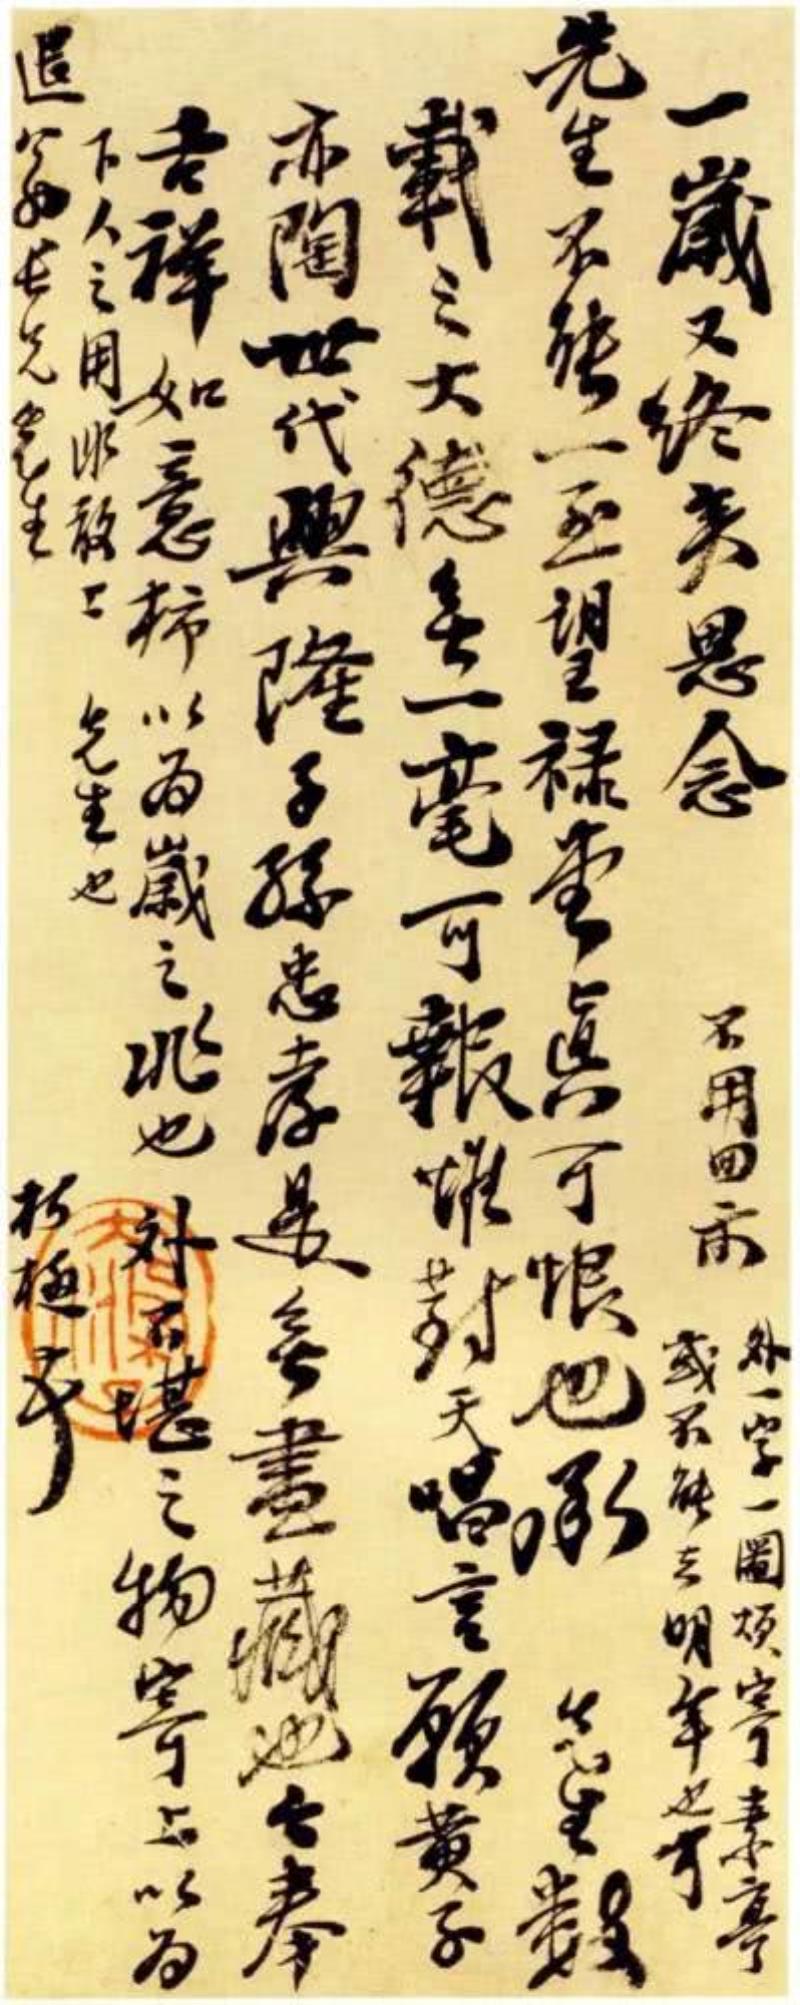 一歲又終矣思念
不用回示
外一字一圖煩寄素亭
或不能去明年也可
先生不能一至望祿堂真可恨也承
先生數
載之大德無一毫可報惟對天唱言願黃子
亦陶世代興隆子孫忠孝是無盡藏也今奉
吉祥如意柿以為歲之兆也外不堪之物寄上以為
下人之用非敢上
先生也
退翁老先先生